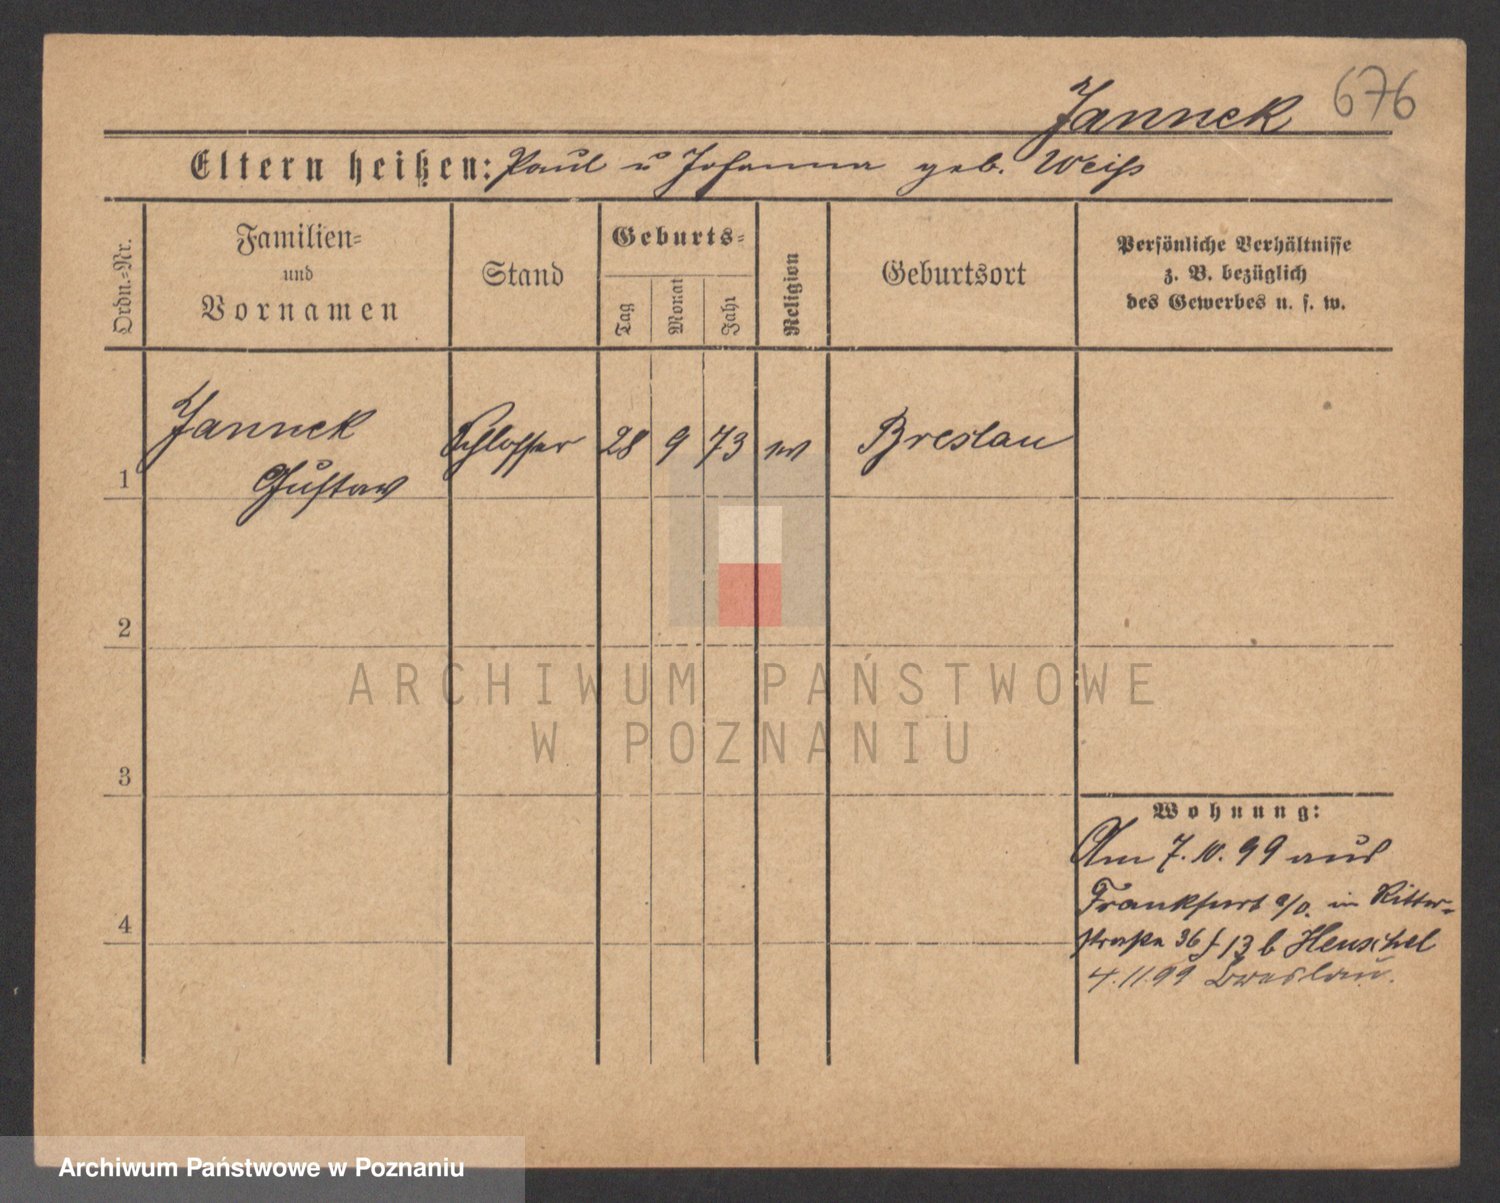 Jannek 676
Eltern heißen: Paul u Johanna geb. Weiß
Ordn.-Nr.
Familien-
und
Vornamen
Stand
Geburts-
Tag
Monat
Jahr
Religion
Geburtsort
Persönliche Verhältnisse
z. B. bezüglich
des Gewerbes u. s. w.
1 Jannek Schlosser 28 9 73 Breslau
Gustav
2
ARCHIWUM PAŃSTWOWE
W POZNANIU
3
Wohnung:
Am 7.10.99 aus
Frankfurt a/O. in Ritter-
4
straße 36 f 13 b Heuschel
4.11.99 Breslau.
Archiwum Państwowe w Poznaniu